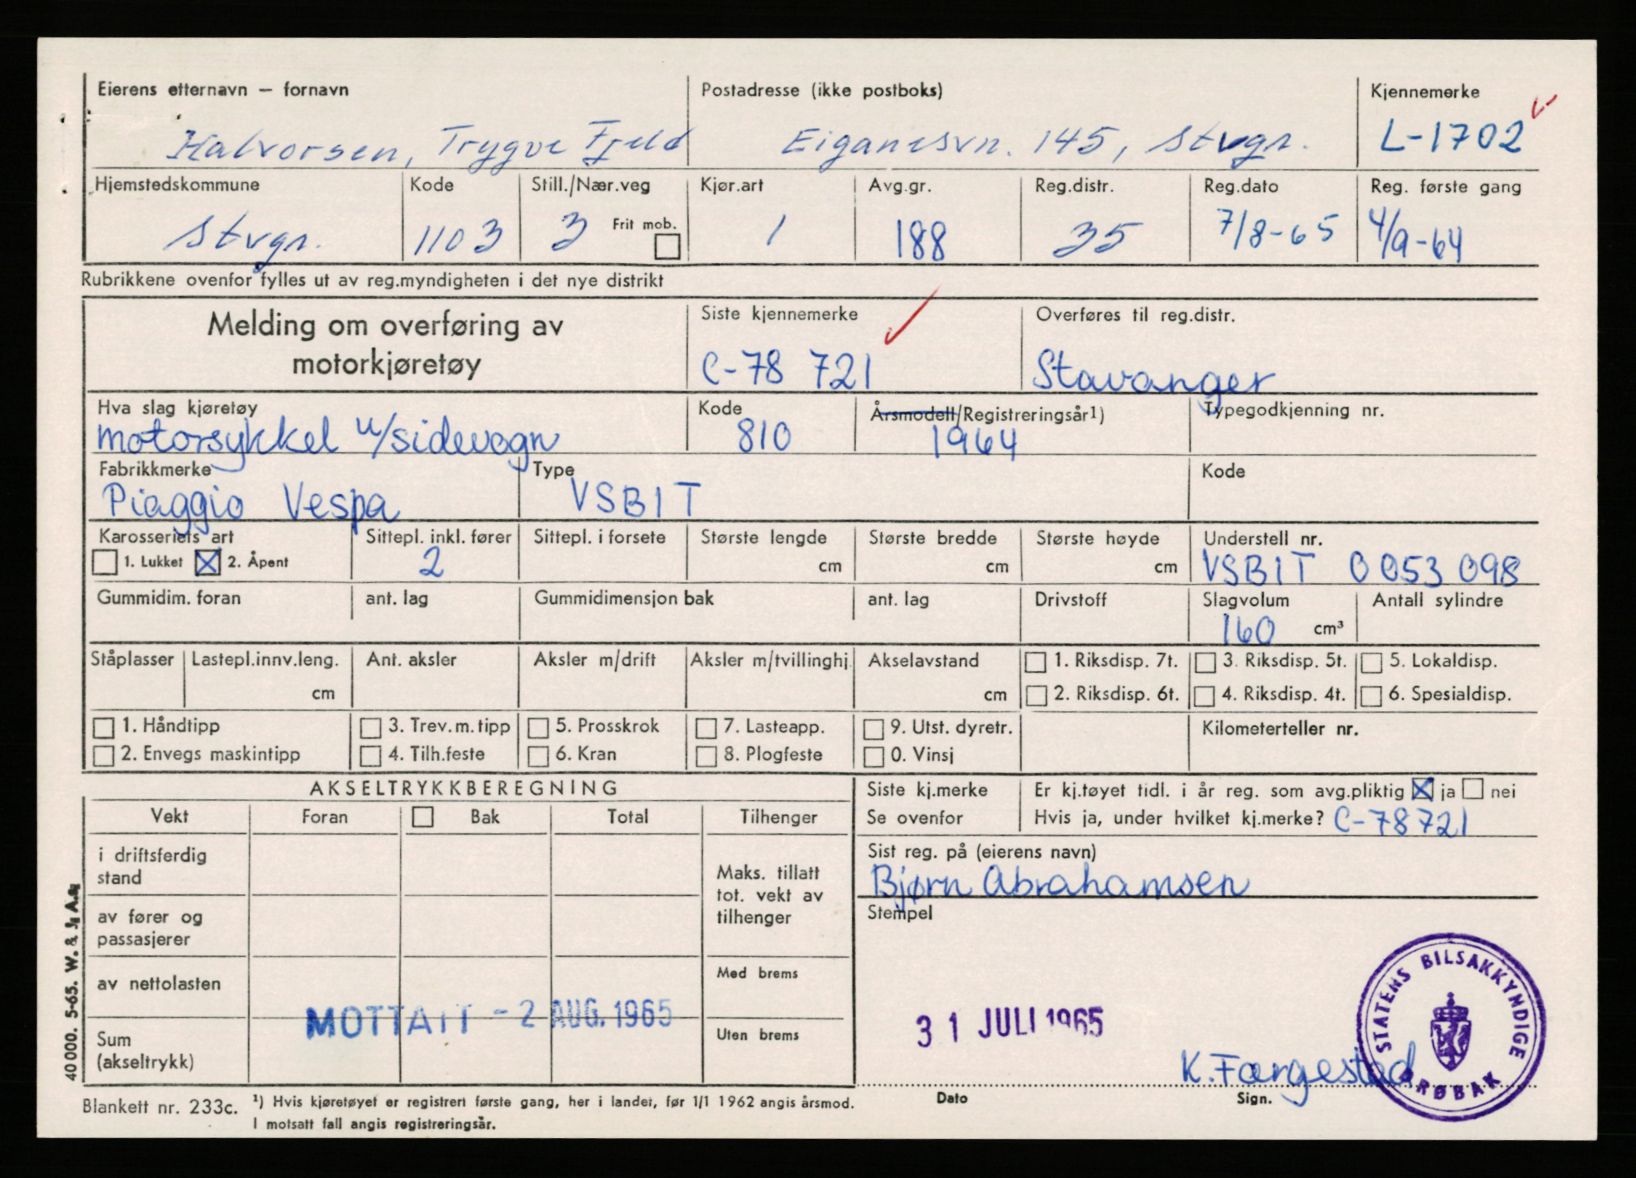 Eierens etternavn — fornavn Postadresse (ikke postboks) Kjennemerke
Halvorsen, Trygve Fjeld Eiganesvn. 145, Stvgr. L-1702
Hjemstedskommune Kode Still./Nær.veg Kjør.art Avg.gr. Reg.distr. Reg.dato Reg. første gang
Stvgr. 1103 3 Frit mob. 1 188 35 7/8-65 4/9-64
Rubrikkene ovenfor fylles ut av reg.myndigheten i det nye distrikt
Melding om overføring av
motorkjøretøy
Siste kjennemerke Overføres til reg.distr.
C-78 721 Stavanger
Hva slag kjøretøy Kode Årsmodell/Registreringsår1) Typegodkjenning nr.
motorsykkel u/sidevogn 810 1964
Fabrikkmerke Type Kode
Piaggio Vespa VSB1T
Karosseriets art Sittepl. inkl. fører Sittepl. i forsete Største lengde Største bredde Største høyde Understell nr.
1. Lukket 2. Åpent 2 cm cm cm VSB1T 0053098
Gummidim. foran ant. lag Gummidimensjon bak ant. lag Drivstoff Slagvolum Antall sylindre
160 cm³
Ståplasser Lastepl.innv.leng. Ant. aksler Aksler m/drift Aksler m/tvillinghj. Akselavstand 1. Riksdisp. 7t. 3. Riksdisp. 5t. 5. Lokaldisp.
cm cm 2. Riksdisp. 6t. 4. Riksdisp. 4t. 6. Spesialdisp.
1. Håndtipp 3. Trev.m.tipp 5. Prosskrok 7. Lasteapp. 9. Utst. dyretr. Kilometerteller nr.
2. Envegs maskintipp 4. Tilh.feste 6. Kran 8. Plogfeste 0. Vinsj
AKSELTRYKKBEREGNING
Vekt Foran Bak Total Tilhenger
i driftsferdig
stand
Maks. tillatt
tot. vekt av
tilhenger
av fører og
passasjerer
av nettolasten Med brems
MOTTATT - 2 AUG. 1965
Sum
(akseltrykk)
Uten brems
Siste kj.merke Er kj.tøyet tidl. i år reg. som avg.pliktig ja nei
Se ovenfor Hvis ja, under hvilket kj.merke? C-78721
Sist reg. på (eierens navn)
Bjørn Abrahamsen
Stempel
STATENS BILSAKKYNDIGE
DRØBAK
31 JULI 1965
K. Færgestad
Dato Sign.
40 000. 5-65. W. & J. A.s
Blankett nr. 233c. ¹) Hvis kjøretøyet er registrert første gang, her i landet, før 1/1 1962 angis årsmod.
I motsatt fall angis registreringsår.